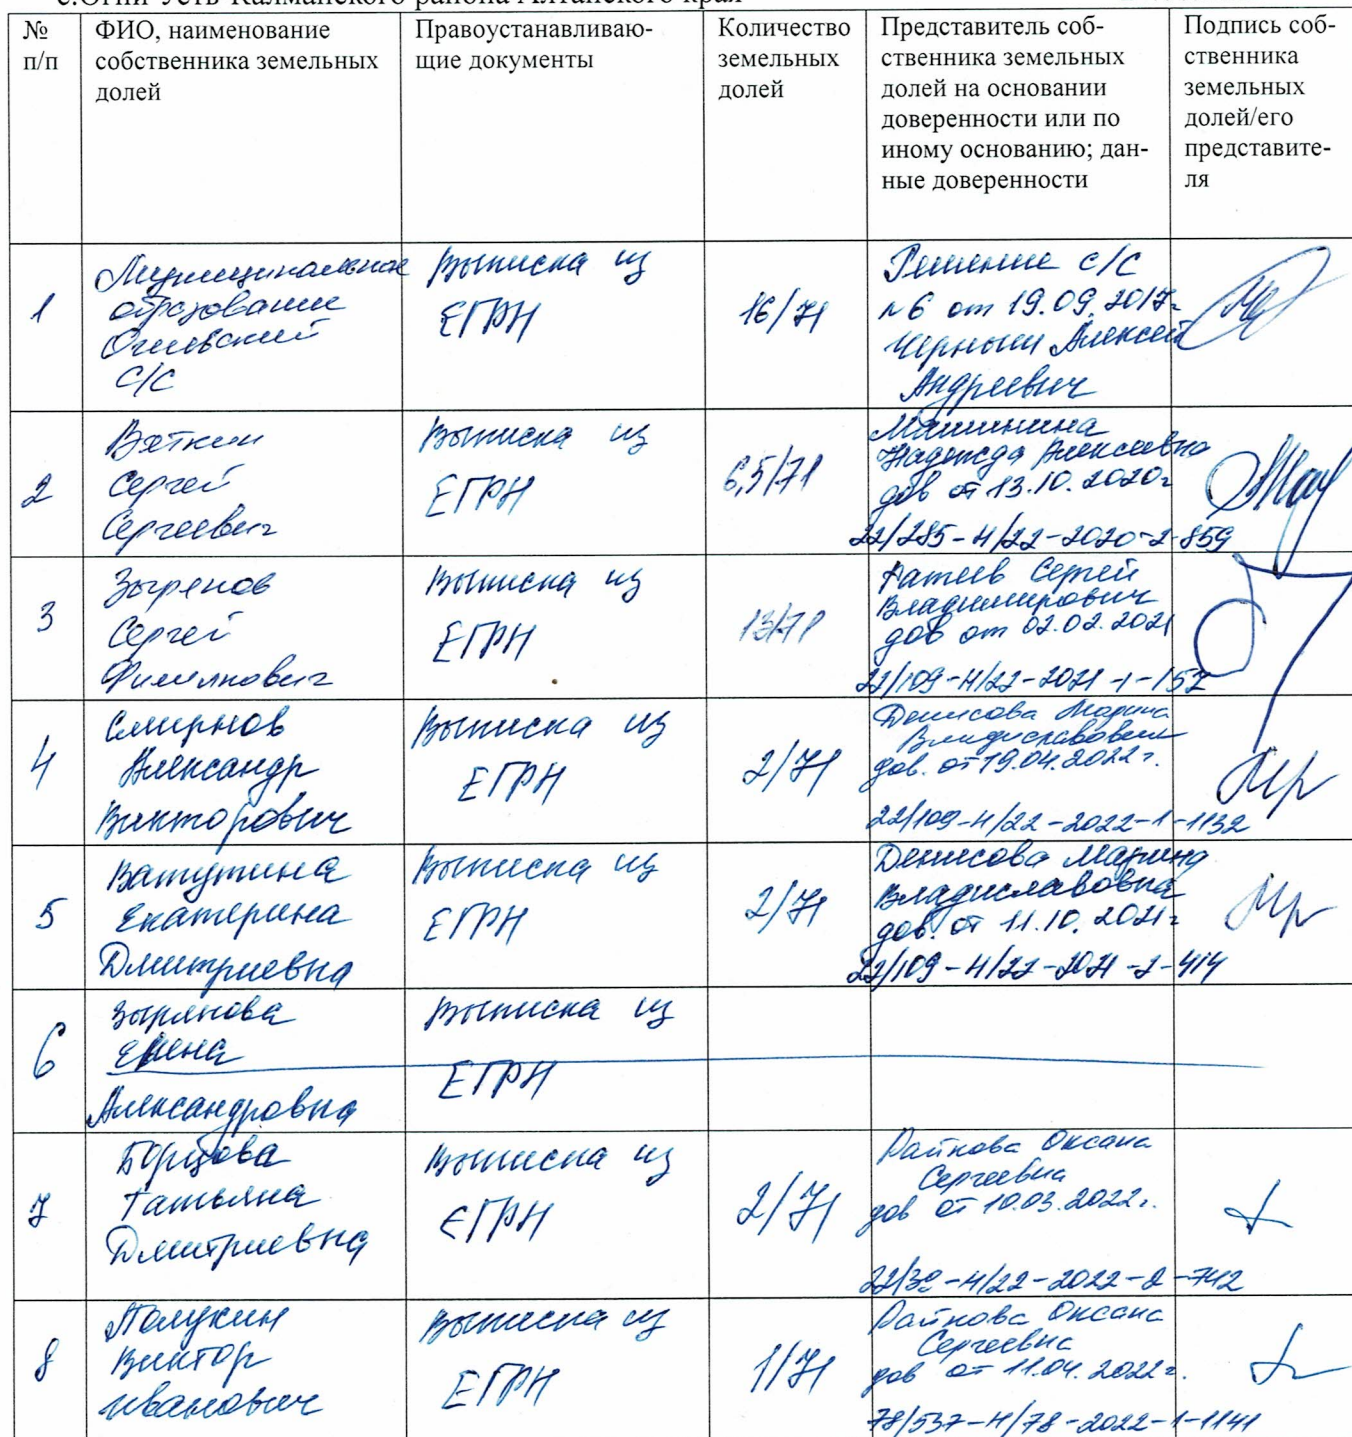 с.Огни Усть-Калманского района Алтайского края
№ п/п
ФИО, наименование
собственника земельных
долей
Правоустанавливаю-
щие документы
Количество
земельных
долей
Представитель соб-
ственника земельных
долей на основании
доверенности или по
иному основанию; дан-
ные доверенности
Подпись соб-
ственника
земельных
долей/его
представите-
ля
1
Муниципальное
образование
Огневский
с/с
Выписка из
ЕГРН
16/71
Решение с/с
№6 от 19.09.2017г
Черных Алексей
Андреевич
2
Вяткин
Сергей
Сергеевич
Выписка из
ЕГРН
6,5/71
Машинина
Надежда Алексеевна
дов от 13.10.2020г
22/285-н/22-2020-2-859
3
Зырянов
Сергей
Филиппович
Выписка из
ЕГРН
13/71
Фатеев Сергей
Владимирович
дов от 02.02.2021
22/109-н/22-2021-1-157
4
Смирнов
Александр
Викторович
Выписка из
ЕГРН
2/71
Денисова Марина
Владиславовна
дов. от 19.04.2022г.
22/109-н/22-2022-1-1132
5
Ватутина
Екатерина
Дмитриевна
Выписка из
ЕГРН
2/71
Денисова Марина
Владиславовна
дов. от 11.10.2021г
22/109-н/22-2021-2-414
6
Зырянова
Елена
Александровна
Выписка из
ЕГРН
7
Борцова
Татьяна
Дмитриевна
Выписка из
ЕГРН
2/71
Райкова Оксана
Сергеевна
дов от 10.03.2022г.
22/39-н/22-2022-2-742
8
Полукин
Виктор
Иванович
Выписка из
ЕГРН
1/71
Райкова Оксана
Сергеевна
дов от 11.04.2022г.
78/537-н/78-2022-1-1141